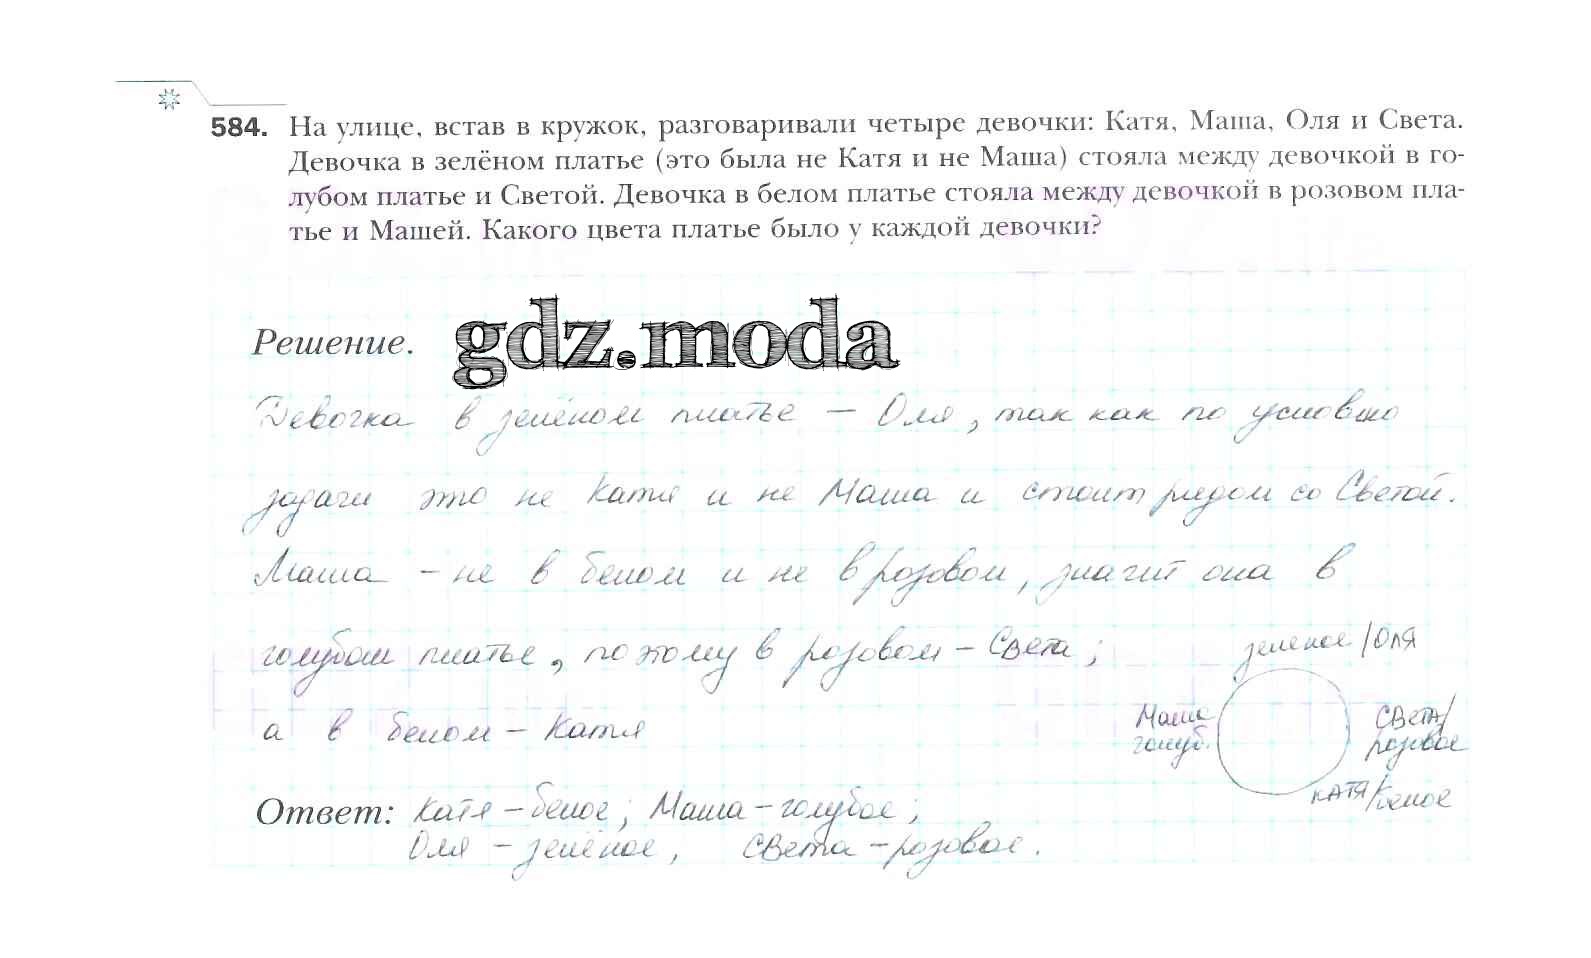 584. На улице, встав в кружок, разговаривали четыре девочки: Катя, Маша, Оля и Света.
Девочка в зелёном платье (это была не Катя и не Маша) стояла между девочкой в го-
лубом платье и Светой. Девочка в белом платье стояла между девочкой в розовом пла-
тье и Машей. Какого цвета платье было у каждой девочки?
Решение. gdz.moda
Девочка в зелёном платье – Оля, так как по условию
задачи это не Катя и не Маша и стоит рядом со Светой.
Маша – не в белом и не в розовом, значит она в
голубом платье, поэтому в розовом – Света;
а в белом – Катя
зеленое/Оля
Маша
голуб.
Света/
розовое
Катя/белое
Ответ: Катя – белое; Маша – голубое;
Оля – зелёное, Света – розовое.